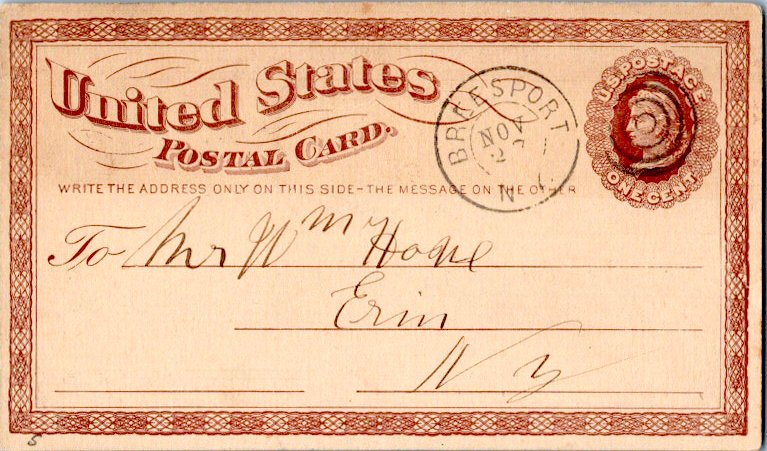 United States
POSTAL CARD.
U.S. POSTAGE
ONE CENT
BREESPORT
NOV
N
WRITE THE ADDRESS ONLY ON THIS SIDE-THE MESSAGE ON THE OTHER
To Mr Wm Hogue
Erin
Ny
5